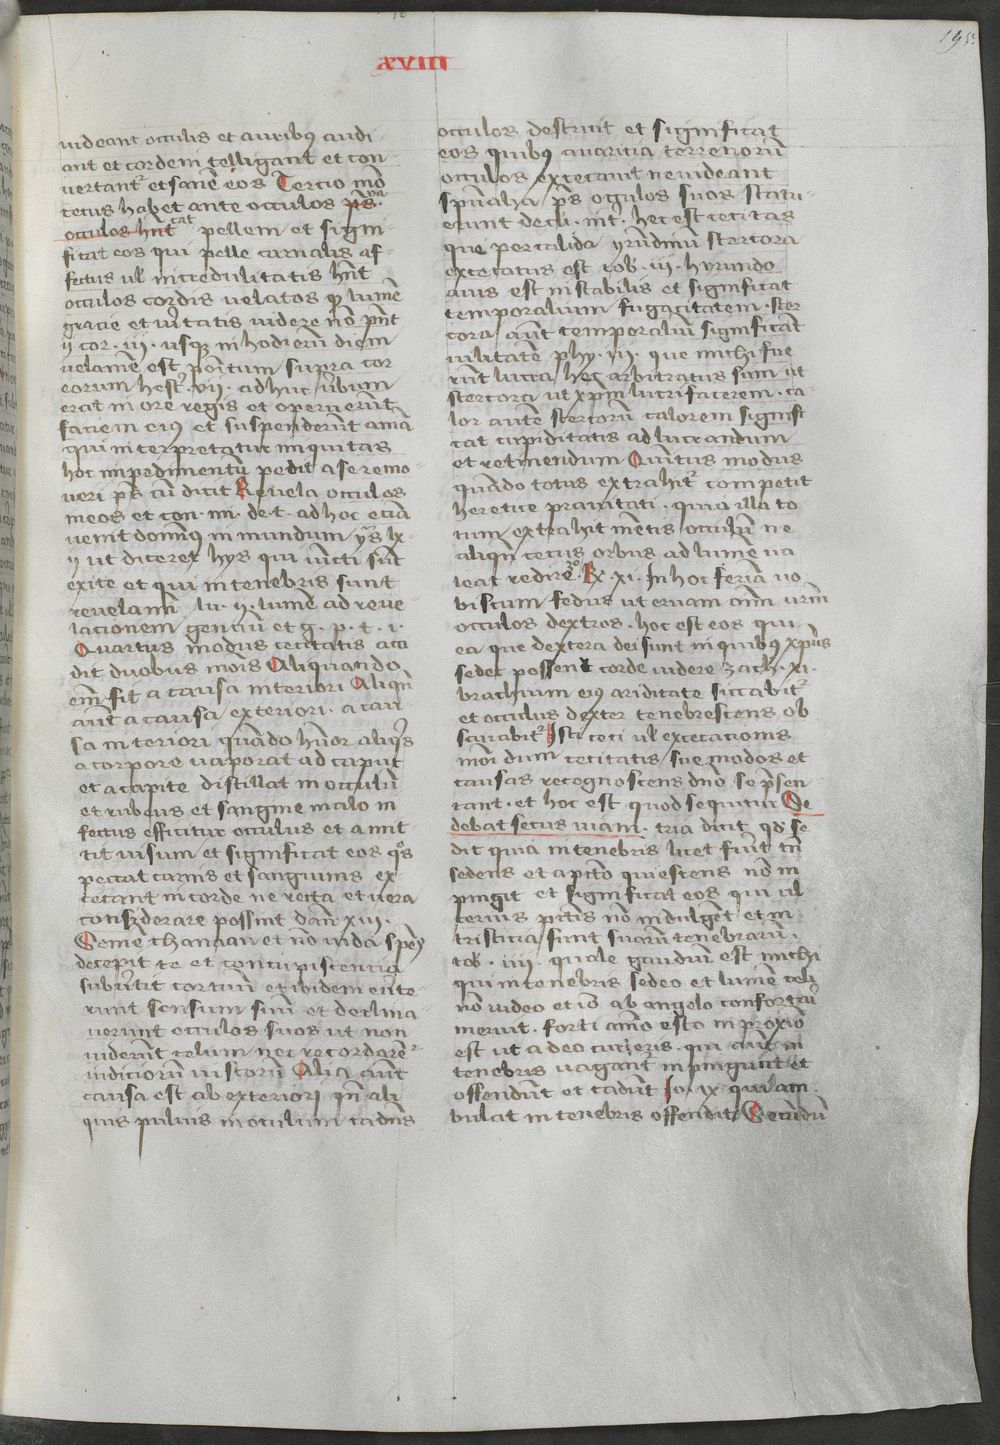 195
XVIIII
uideant occulis et auribꝰ audi
ant et cordem telligant et con-
vertantᷣ et sanē eos Tercio mō
cecus habet ante occulos
occulos hn̄t pellem et signi-
ficat eos qui pelle carnalis af-
fectus ul incredulitatis hn̄t
occulos cordis uelatos lumē
gracie et uītatis uidere nō pn̄t
ij cor · iii · usqꝫ in hodiernū diem
uelamē est po͞itum supra cor
eorum hest̉ · vii · adhuc ūbum
erat in ore regis et operuerūt
faciem eiꝰ et suspenderūt amā
qui interpretatur iniquitas
hoc impedimentū pedit a se remo-
ueri p̄s cū dicit Reuela occulos
meos et con · mi · de · t · ad hoc eciā
uenit dominꝰ in mundum ys̄ lx-
ij ut diceret hys qui uīcti sūt
exite et qui in tenebris sunt
reuelamī lu · ij · lumē ad reue
lacionem genciū et g · p · t · i ·
Quartus modus cecitatis acci
dit duobus mo͞is Aliquando
em̄ fit a causa interiori Aliqn̄
aūt a causa exteriori · a cau-
sa interiori quādo hūor aliq̉s
a corpore uaporat ad caput
et a capite distillat in occulū
et rubeus et sanguine malo in
fectus efficitur occulus et amit
tit uisum et significat eos qͦs
peccat carnis et sanguinis ex
cecant in corde ne recta et uera
considerare possint dan̄ xiij ·
Semē chanaan et nō iuda spēs
decepit te et concupiscencia
subūtit cor tuū et ibidem eūte-
runt sensum suū et declina-
uerunt occulos suos ut non
uiderūt celum nec recordarēᷣ
iudiciorū iustorū Alia aūt
causa est ab exteriori qn̄ ali
quis puluis in oculum cadens
occulos destruit et significat
eos quibꝰ auaritia terrenorū
occulos excecauit ne uideant
spūalia p̄s oculos suos statu
erunt decli · int · hec est cecitas
que per calida yrūdinū stercora
excecatus est tob · iii · hyrundo
auis est instabilis et significat
temporalium fugacitatem · ster
cora aūt temporaliū significāt
uilitatē phy · iii · que michi fue
rūt lucra hec arbitratus sum ut
stercora ut xp̄m lucrifacerem · ca
lor autē stercorū calorem signifi
cat cupiditatis ad lucrandum
et retinendum Quintus modus
quādo totus extrahitᷣ competit
heretice prauitati · quia illa to
tum extrahit mētis occulū ne
aliqn̄ cecus orbus ad lumē ua
leat redire · R · xi · In hoc feriā uo
biscum fedus ut eruam om̄ ur̄m
occulos dextros · hoc est eos qui
ea que dextera dei sunt in quibus xp̄us
sedet possent corde uidere zach · xi ·
brachium eiꝰ ariditate siccabitᷣ
et occulus dexter tenebrescens ob
scurabitᷣ Isti ceci ul excecacionis
mo͞r dum cecitatis sue modos et
causas recognoscens dn̄o se p̄sen
tant · et hoc est quod sequitur Se
debat secus uiam · tria dicit qd̉ se
dit quia in tenebris licet fūit tn̄
sedens et apīto quiescens nō in
pingit et significat eos qui ul
terius pctīs nō indulgēt et in
tristicia sunt suarū tenebrarū ·
tob · iiii · quale gaudiū est michi
qui in tenebris sedeo et lumē celi
nō uideo et iō ab angelo confortari
meruit · forti aīo esto in proxīo
est ut a deo cureris · qui aūt in
tenebris uagantᷣ inpingunt et
offendūt et cadūt Io · ix qui am
bulat in tenebris offendit Secūdū